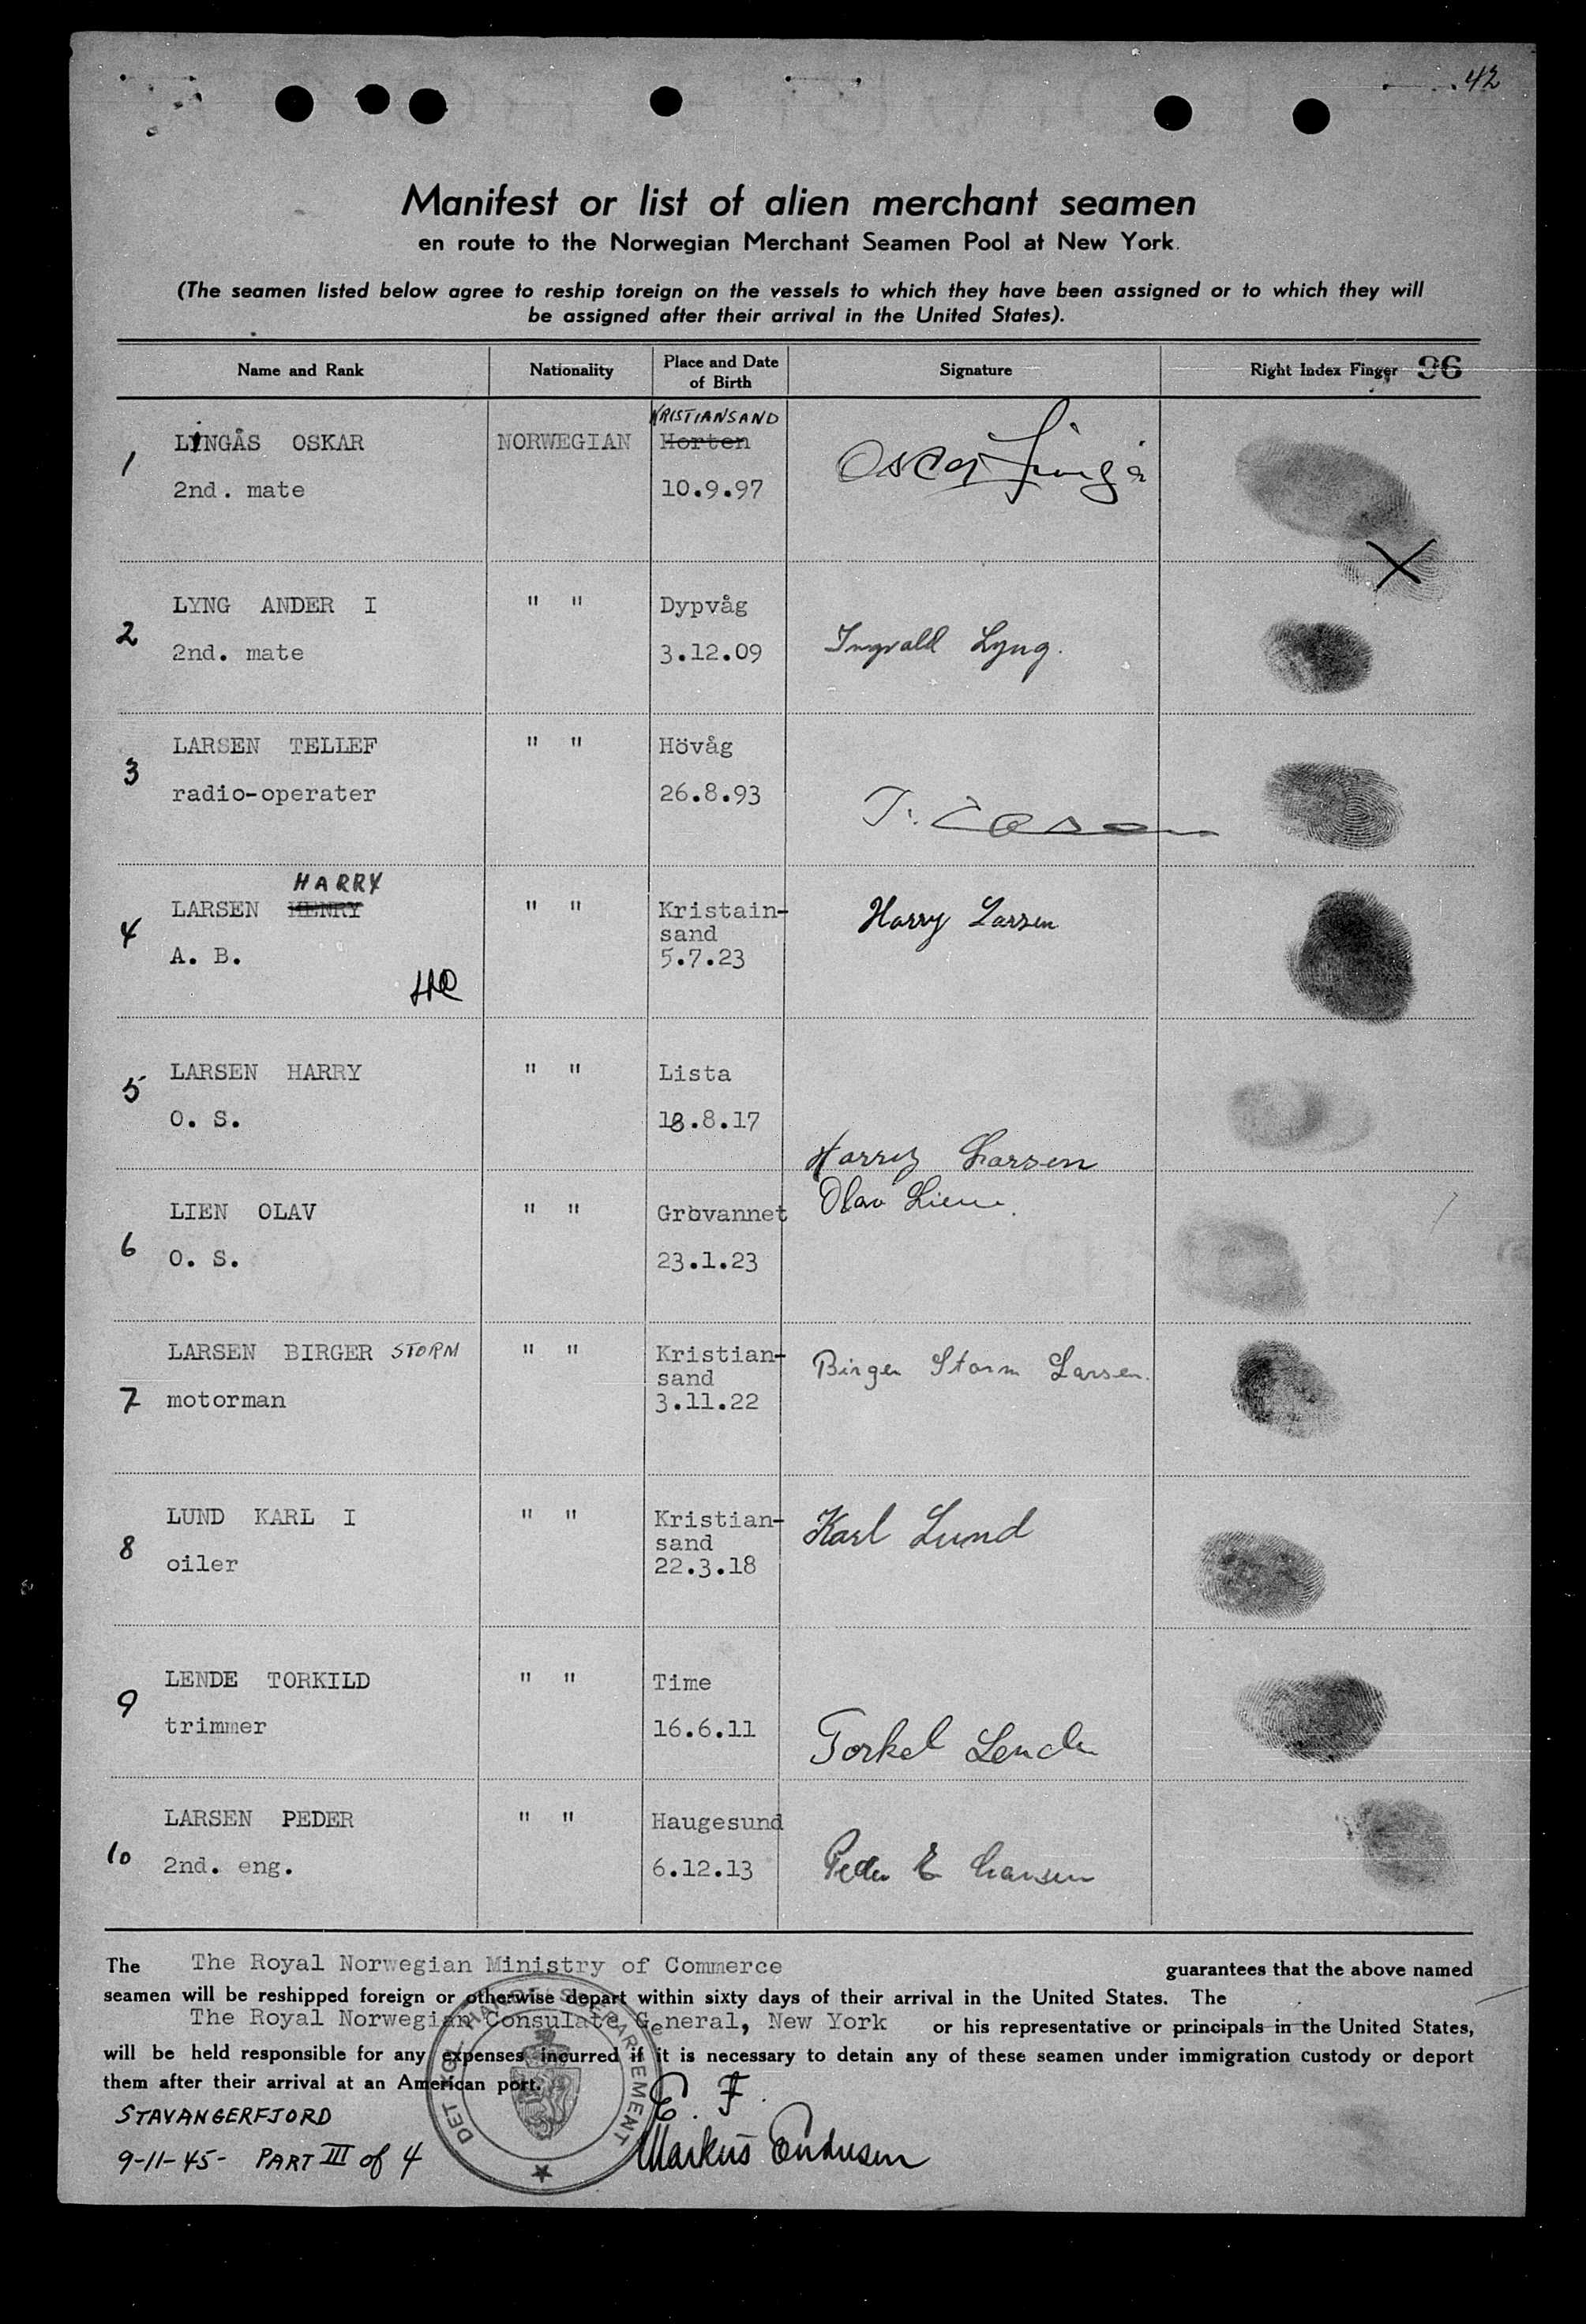 42
Manifest or list of alien merchant seamen
en route to the Norwegian Merchant Seamen Pool at New York.
(The seamen listed below agree to reship foreign on the vessels to which they have been assigned or to which they will
be assigned after their arrival in the United States).
Name and Rank Nationality Place and Date of Birth Signature Right Index Finger 96
KRISTIANSAND
1 LINGÅS OSKAR NORWEGIAN Horten Oscar Lingås
2nd. mate 10.9.97
2 LYNG ANDER I " " Dypvåg Ingvald Lyng.
2nd. mate 3.12.09
3 LARSEN TELLEF " " Hövåg
radio-operater 26.8.93 T. Larsen
HARRY
4 LARSEN HENRY " " Kristain-
sand Harry Larsen
A. B. 5.7.23
5 LARSEN HARRY " " Lista
O. S. 18.8.17
Harry Larsen
6 LIEN OLAV " " Grovannet Olav Lien.
O. S. 23.1.23
LARSEN BIRGER STORM " " Kristian-
sand Birger Storm Larsen.
7 motorman 3.11.22
8 LUND KARL I " " Kristian-
sand Karl Lund
oiler 22.3.18
9 LENDE TORKILD " " Time
trimmer 16.6.11 Torkel Lende
10 LARSEN PEDER " " Haugesund
2nd. eng. 6.12.13 Peder E Larsen
The The Royal Norwegian Ministry of Commerce guarantees that the above named
seamen will be reshipped foreign or otherwise depart within sixty days of their arrival in the United States. The
The Royal Norwegian Consulate General, New York or his representative or principals in the United States,
will be held responsible for any expenses incurred if it is necessary to detain any of these seamen under immigration custody or deport
them after their arrival at an American port.
DET KGL. HANDELSDEPARTEMENT
E. F.
STAVANGERFJORD
9-11-45- PART III of 4
Markus Endresen